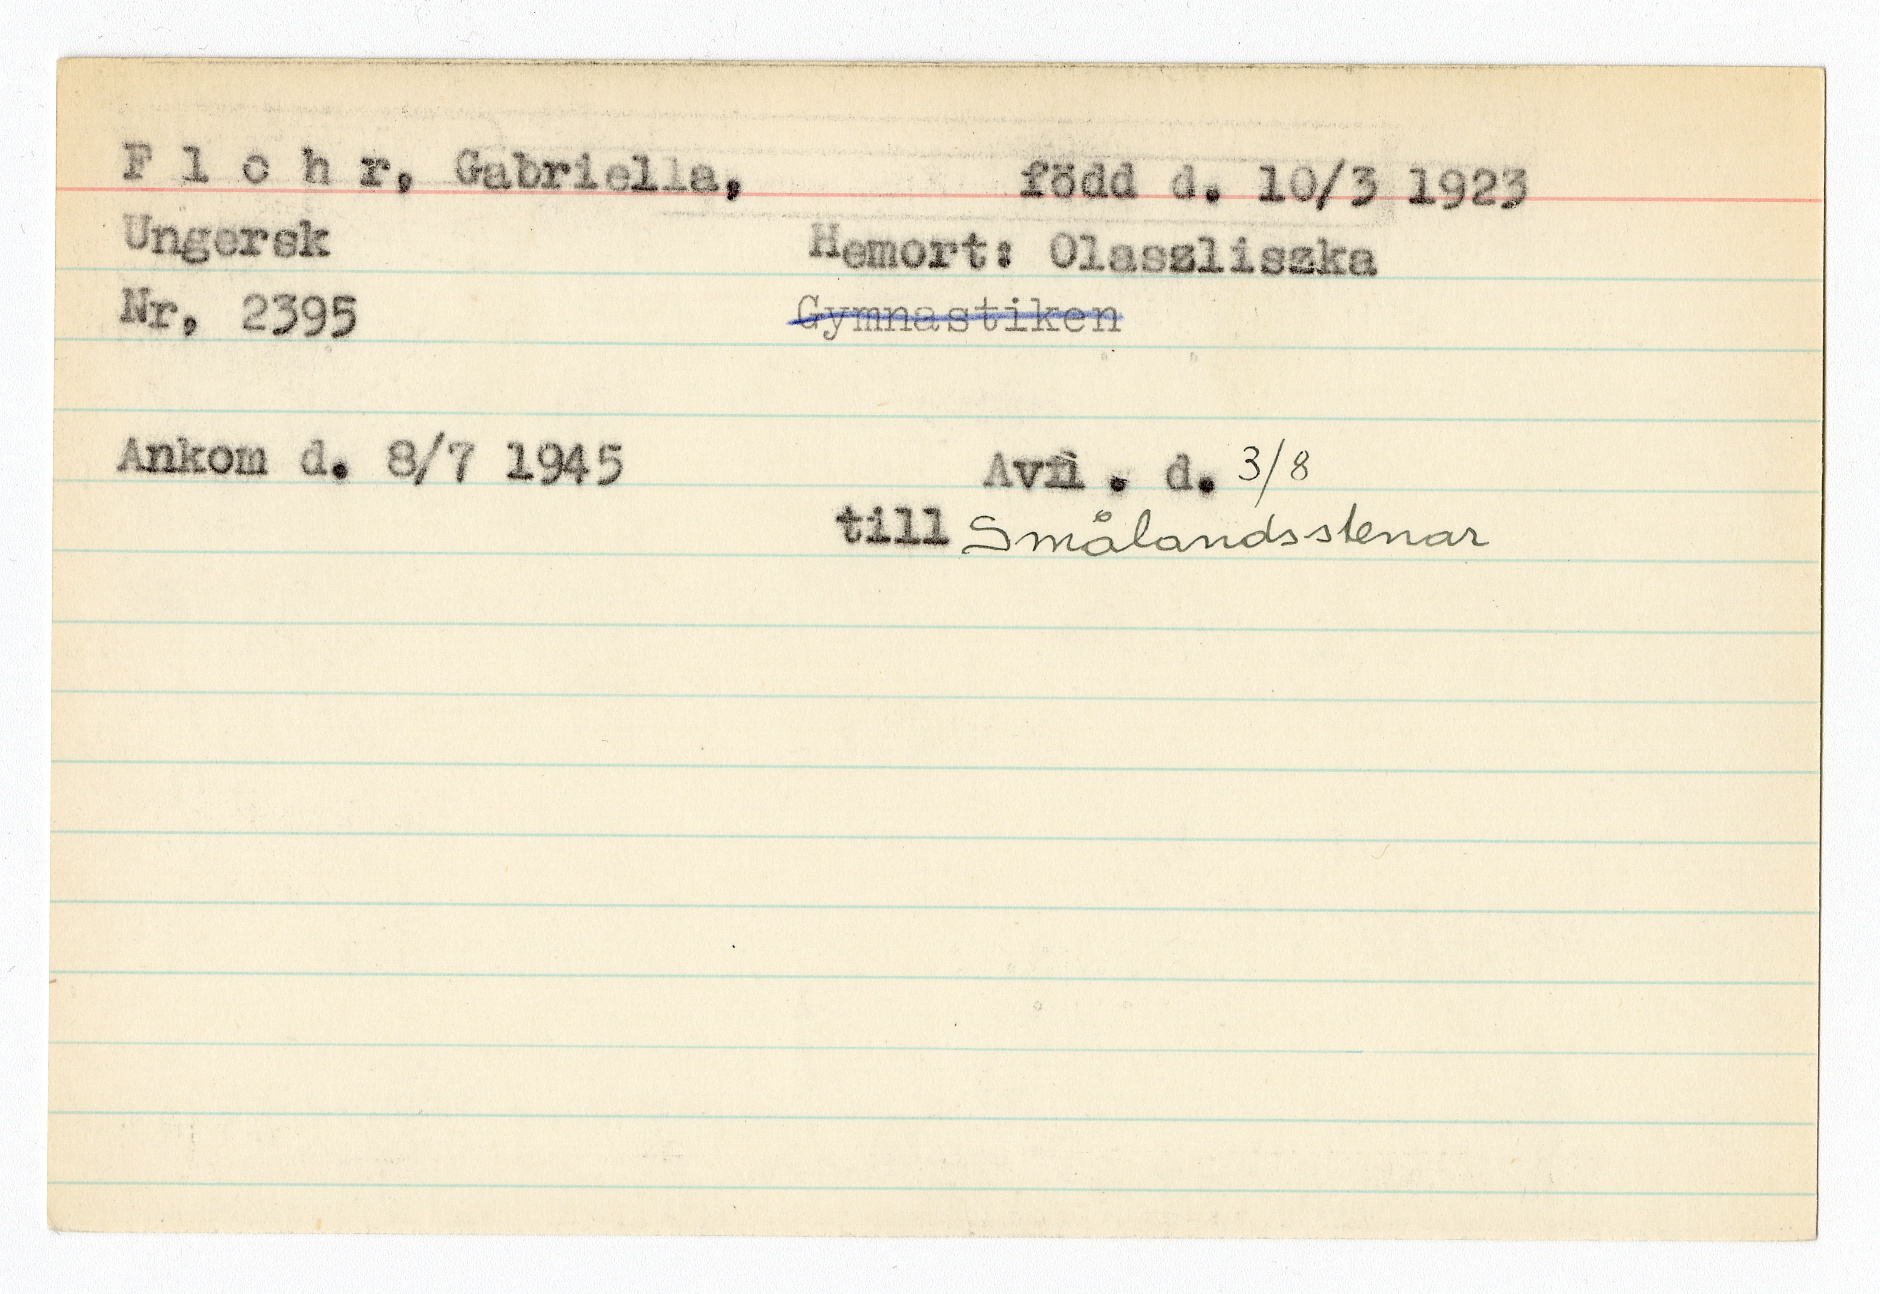 F l o h r, Gabriella, född d. 10/3 1923
Ungersk Hemort: Olaszliszka
Nr, 2395 Gymnastiken
Ankom d. 8/7 1945 d. 3/8
till Smålandsstenar